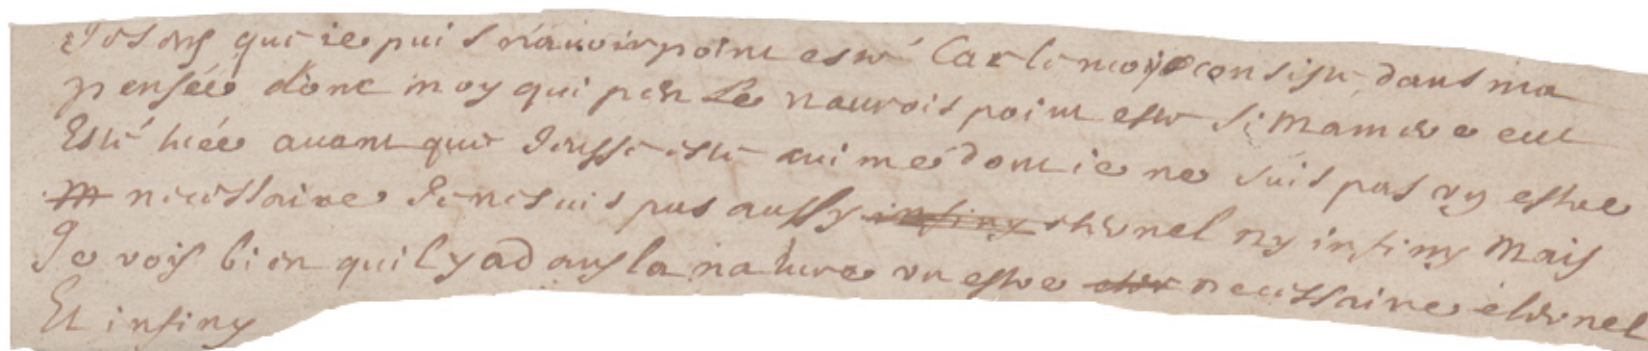 Je sens que ie puis n'auoir point esté Car le moy consiste dans ma
pensée donc moy qui pense n'aurois point esté si ma mere eut
Esté tuée auant que J'eusse esté animé donc ie ne suis pas vn estre
necessaire Je ne suis pas aussy infiny eternel ny infiny Mais
Je vois bien quil y a dans la nature vn estre necessaire eternel
Et infiny